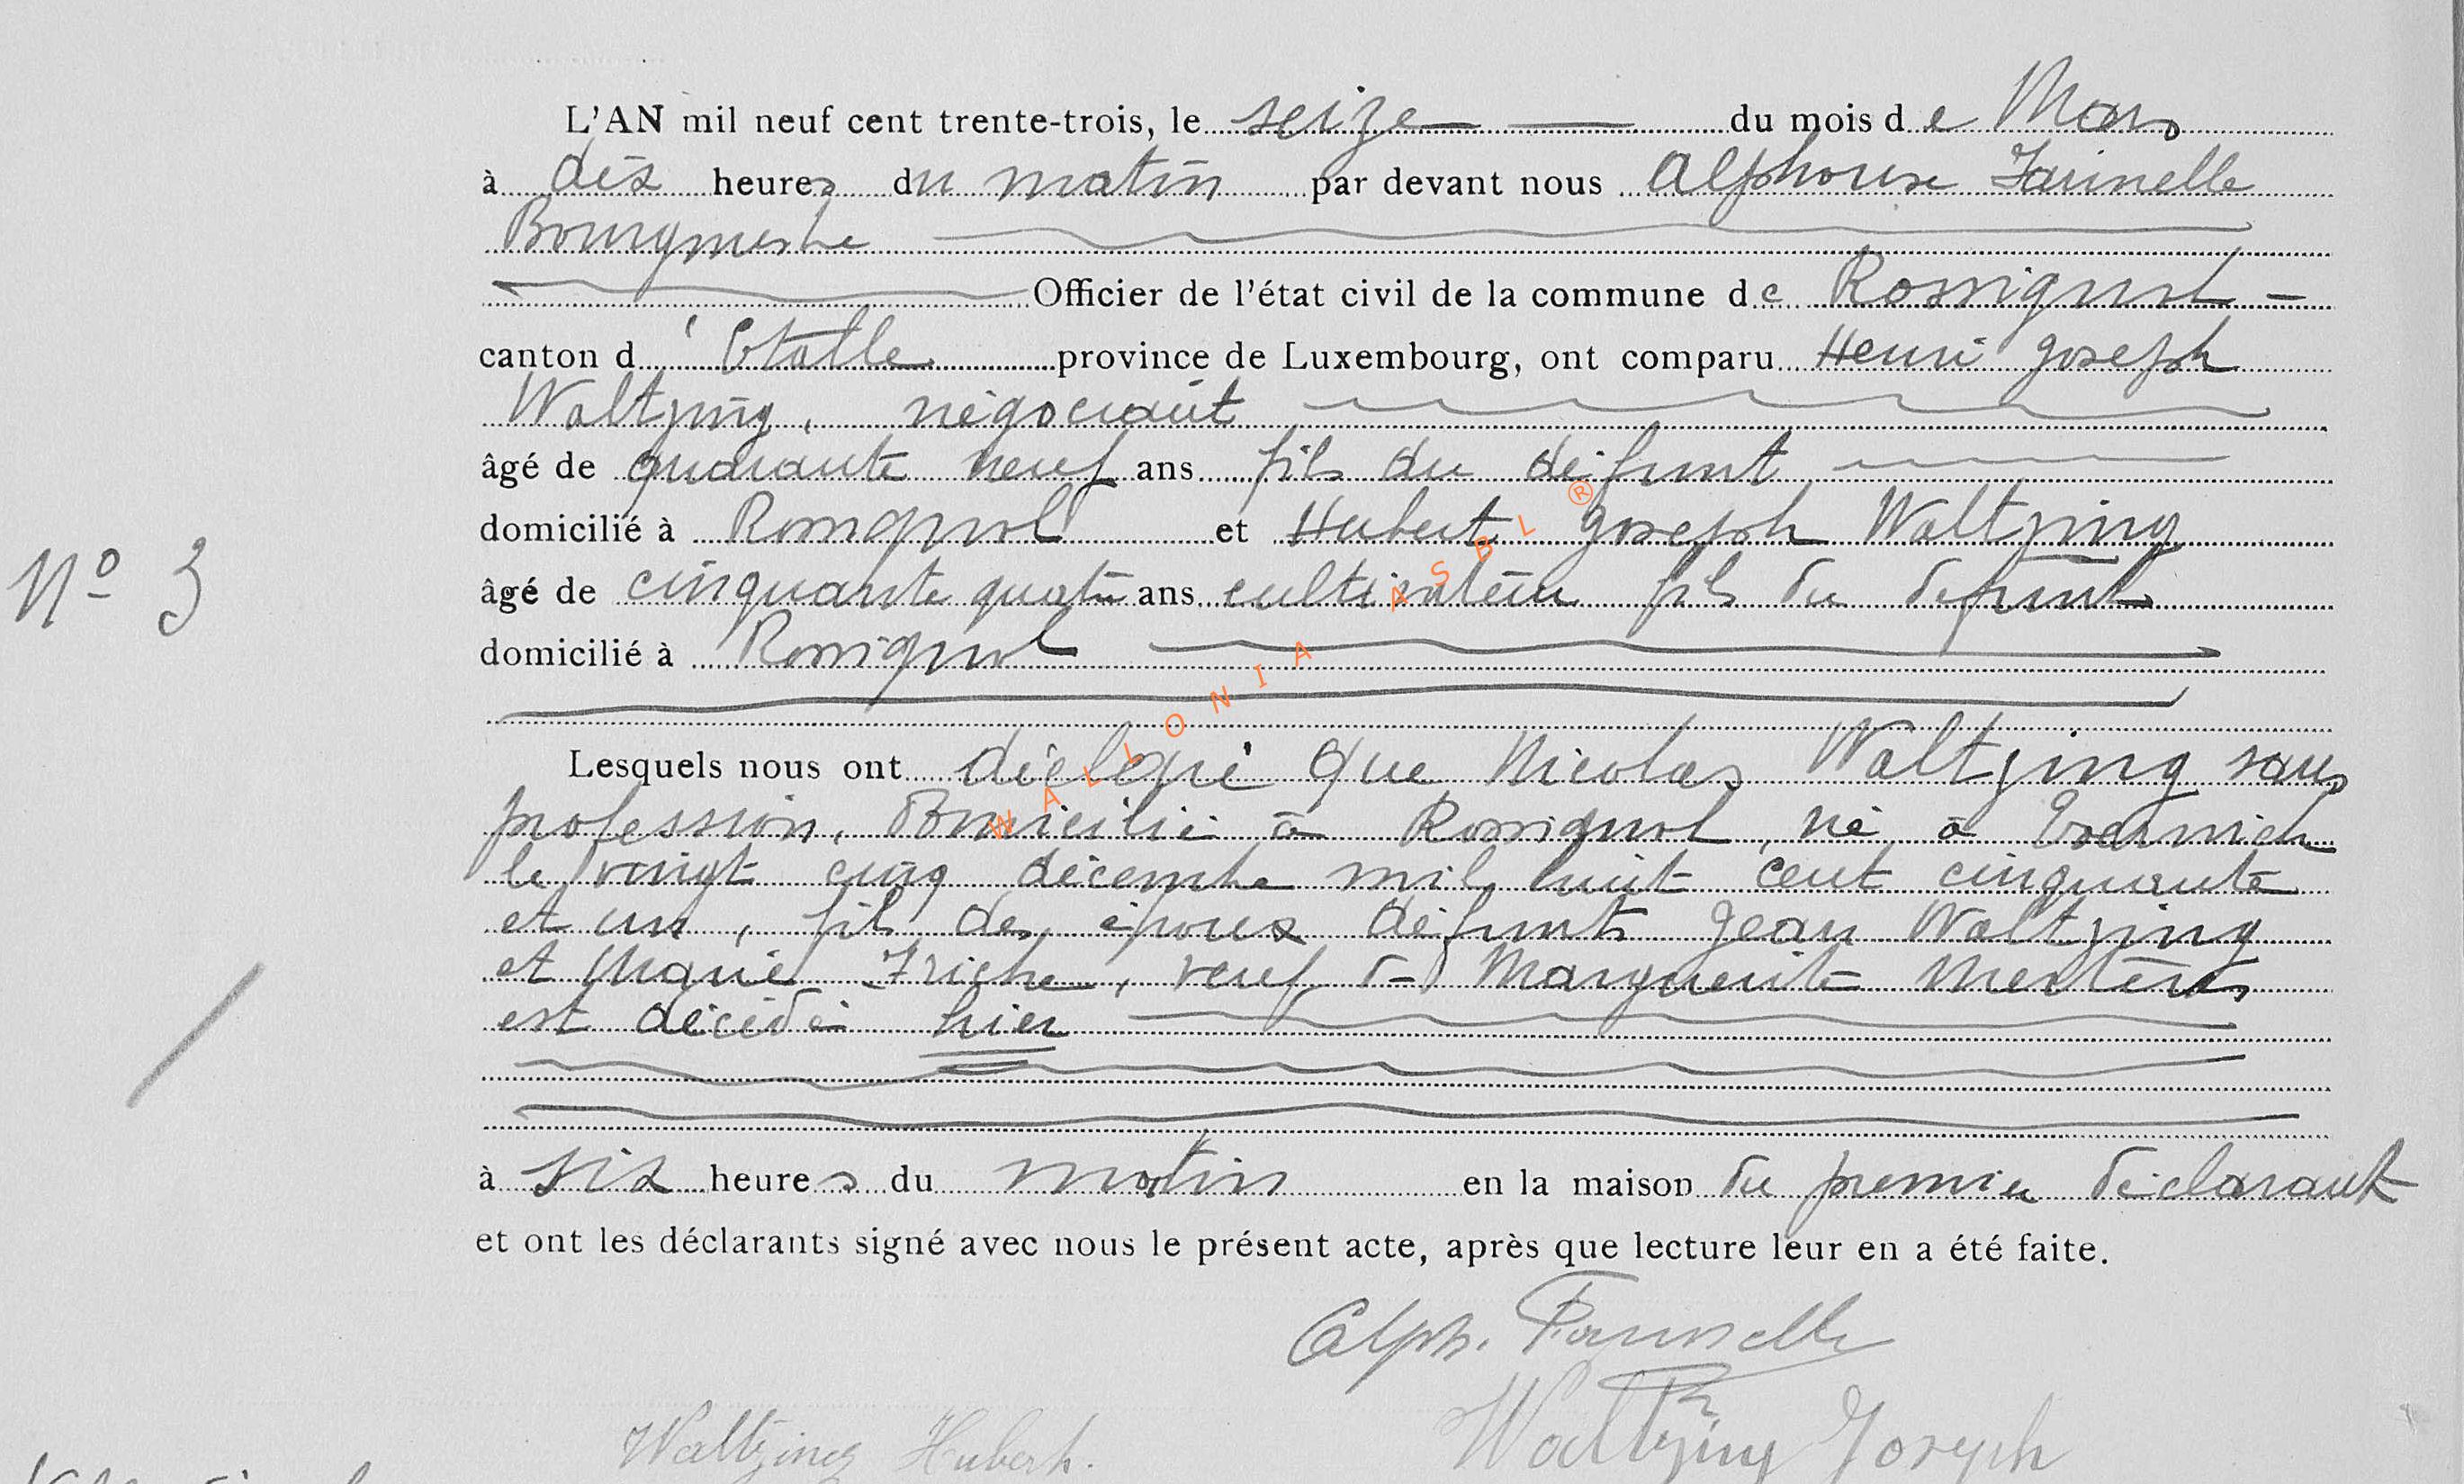 L'AN mil neuf cent trente-trois, le seize du mois de Mars
à dix heures du matin par devant nous Alphonse Fairnelle
Bourgmestre
Officier de l'état civil de la commune de Rossignol
canton d'Etalle province de Luxembourg, ont comparu Henri Joseph
Waltzing, négociant
âgé de quarante neuf ans fils du défunt
domicilié à Rossignol et Hubert Joseph Waltzing
N° 3
âgé de cinquante quatre ans cultivateur fils du défunt
domicilié à Rossignol
Lesquels nous ont déclaré que Nicolas Waltzing sans
profession, Domicilié à Rossignol, né à
le vingt cinq décembre mil huit cent cinquante
et un, fils des époux défunts Jean Waltzing
et Marie Friche, veuf de Marguerite Mertens
est décédé hier
à six heures du matin en la maison du premier déclarant
et ont les déclarants signé avec nous le présent acte, après que lecture leur en a été faite.
Alph.
Waltzing Hubert. Waltzing Joseph
WALLONIA ASBL ®